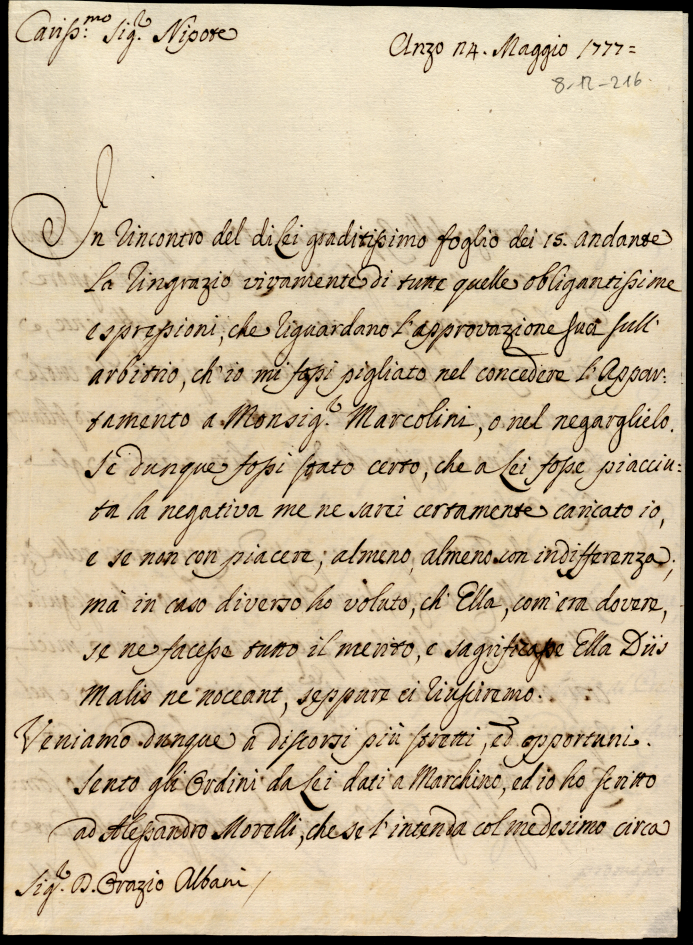 Cariss:mo Sig.r Nipote
Anzo 24. Maggio 1777=
8-12-216.
In rincontro del di Lei graditissimo foglio dei 15. andante
La ringrazio vivamente di tutte quelle obligantissime
espressioni, che riguardano l'approvazione sua sull'
arbitrio, ch'io mi fossi pigliato nel concedere l'Appar-
tamento a Monsig.r Marcolini, o nel negarglielo.
Se dunque fossi stato certo, che a Lei fosse piacciu=
ta la negativa me ne sarei certamente caricato io,
e se non con piacere, almeno, almeno con indifferenza;
mà in caso diverso ho voluto, ch'Ella, com'era dovere,
se ne facesse tutto il merito, e sagrificasse Ella Diis
Malis ne noceant, seppure ci riusciremo.
Veniamo dunque a discorsi più stretti, ed opportuni.
Sento gli Ordini da Lei dati a Marchino, ed io ho scritto
ad Alessandro Morelli, che se l'intenda col medesimo circa
Sig.r D. Orazio Albani /